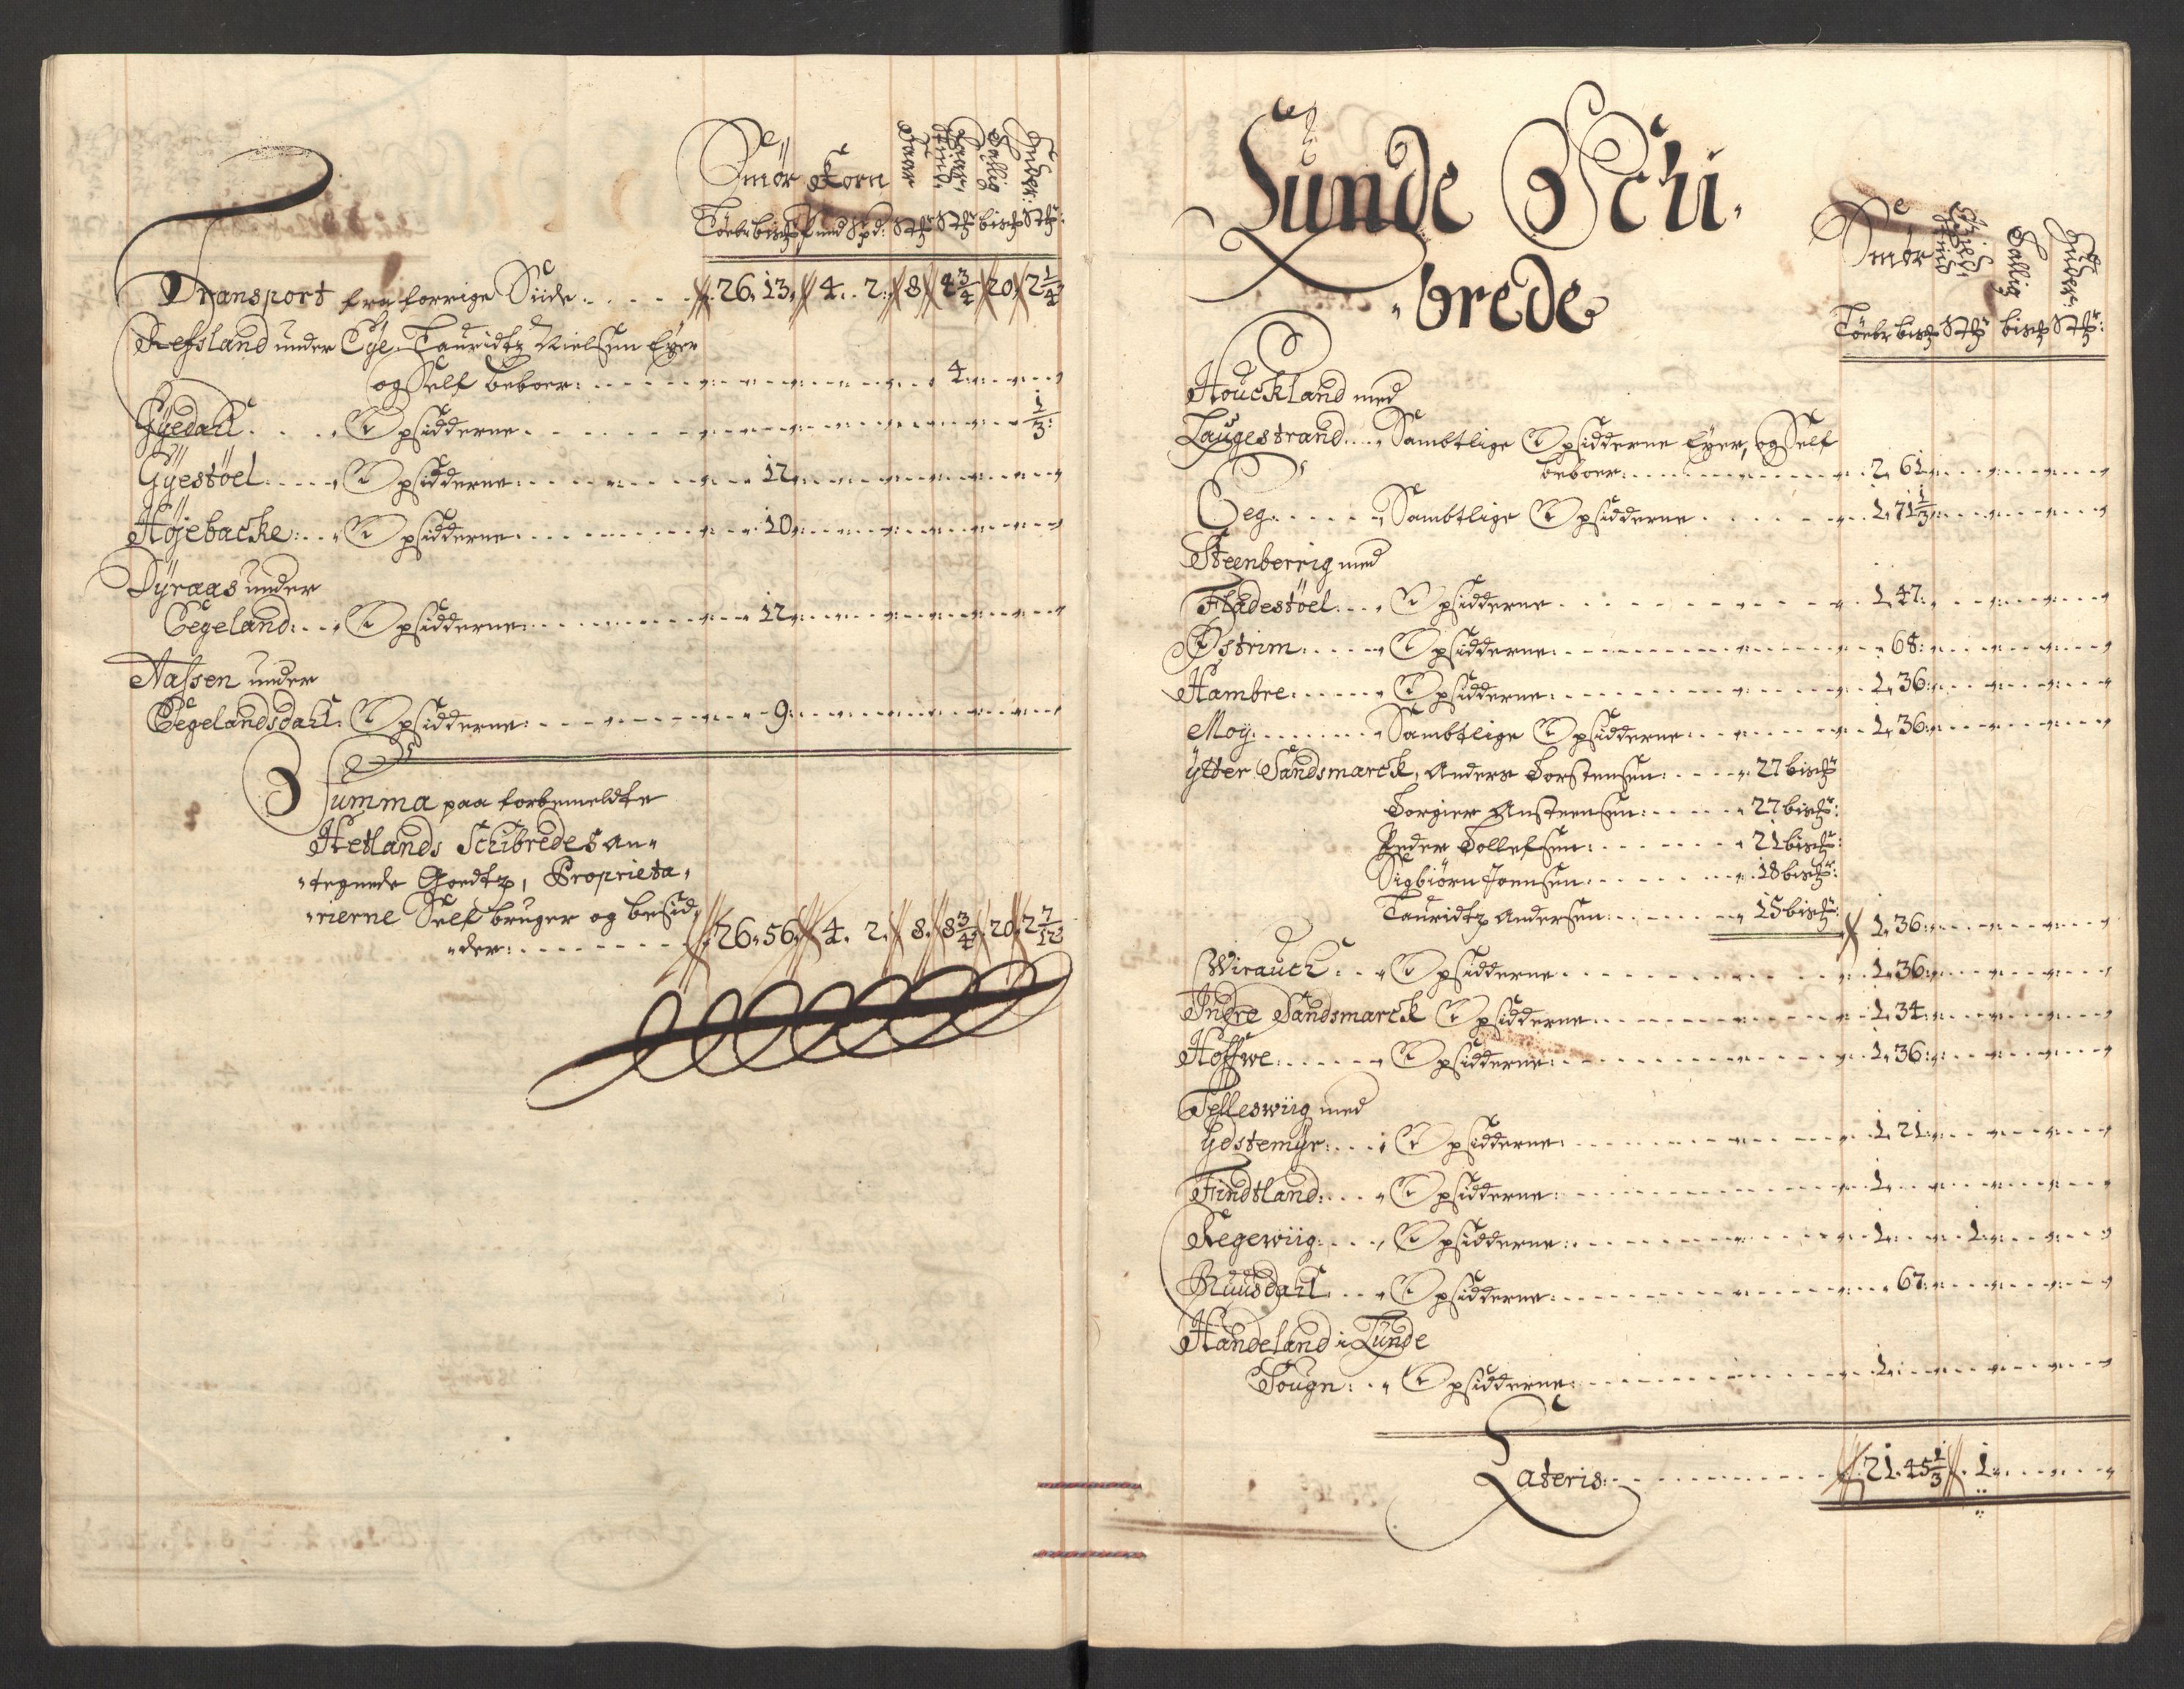 Smör Korn Faar Hud Sallig Huder
Töebr bisp mrl Spd: Stk Stk bisp Stk:
Transport fra forrige Siide: . . . 26. 13. 4. 2. 8. 4 3/4 20. 2 1/4
Refsland under Eye, Lauridtz Nielsen Eyer
og Self beboer: 4.
Gÿedahl. Opsidderne 1/3:
Gÿestöel. Opsidderne 12
Höjebacke: Opsidderne 10
Dÿraas under
Eegeland: Opsidderne: 12
Nassen under
Eegelandsdahl: Opsidderne: 9:
Summa paa forbemeldte
Hetlands Schibredes an-
tegnede Goedtz, Proprieta-
rierne Self bruger og besid-
der: 26. 56. 4. 2. 8. 8 3/4. 20. 2 7/12
Lunde Schi-
brede
Smör Hud Sallig Huder
Töebr bisp Stk bisp Stk:
Houckland med
Laugestrand. Sambtlige Opsidderne Eyer, og Self
beboer: 2. 61.
Eeg. Sambtlige Opsidderne 1. 71 1/3
Steenberrig med
Fladestöel. Opsidderne 1. 47.
Östrim. Opsidderne: 68:
Hambre. Opsidderne: 1. 36:
Moÿ. Sambtlige Opsidderne: 1. 36:
ÿtter Sandsmarck, Anders Torstensen: 27 bisp
Torgier Anstensen: 27 bisp:
Peder Tollefsen: 21 bisp:
Sigbiörn Joensen. 18 bisp:
Lauridtz Andersen: 15 bisp: 1. 36:
Wirauch: Opsidderne 1. 36:
Indre Sandsmarck Opsidderne 1. 34:
Hoffwe. Opsidderne: 1. 36:
Felleswiig med
Gostemÿr: Opsidderne: 1. 21:
Findtland: Opsidderne: 1.
Regewiig: Opsidderne: 1. 1.
Ruusdahl Opsidderne: 67:
Handeland i Lunde
Sougn: Opsidderne: 1.
Lateris: 21. 45 1/3 . 1.